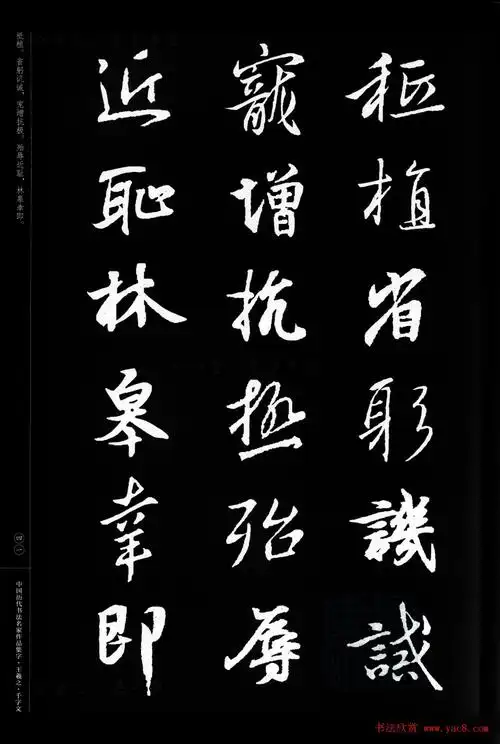 祗植省躬譏誡
寵增抗極殆辱
近恥林皋幸即
祗植。省躬讥诫，宠增抗极。殆辱近耻，林皋幸即。
四一
中国历代书法名家作品集字·王羲之·千字文
书法欣赏 www.yac8.com